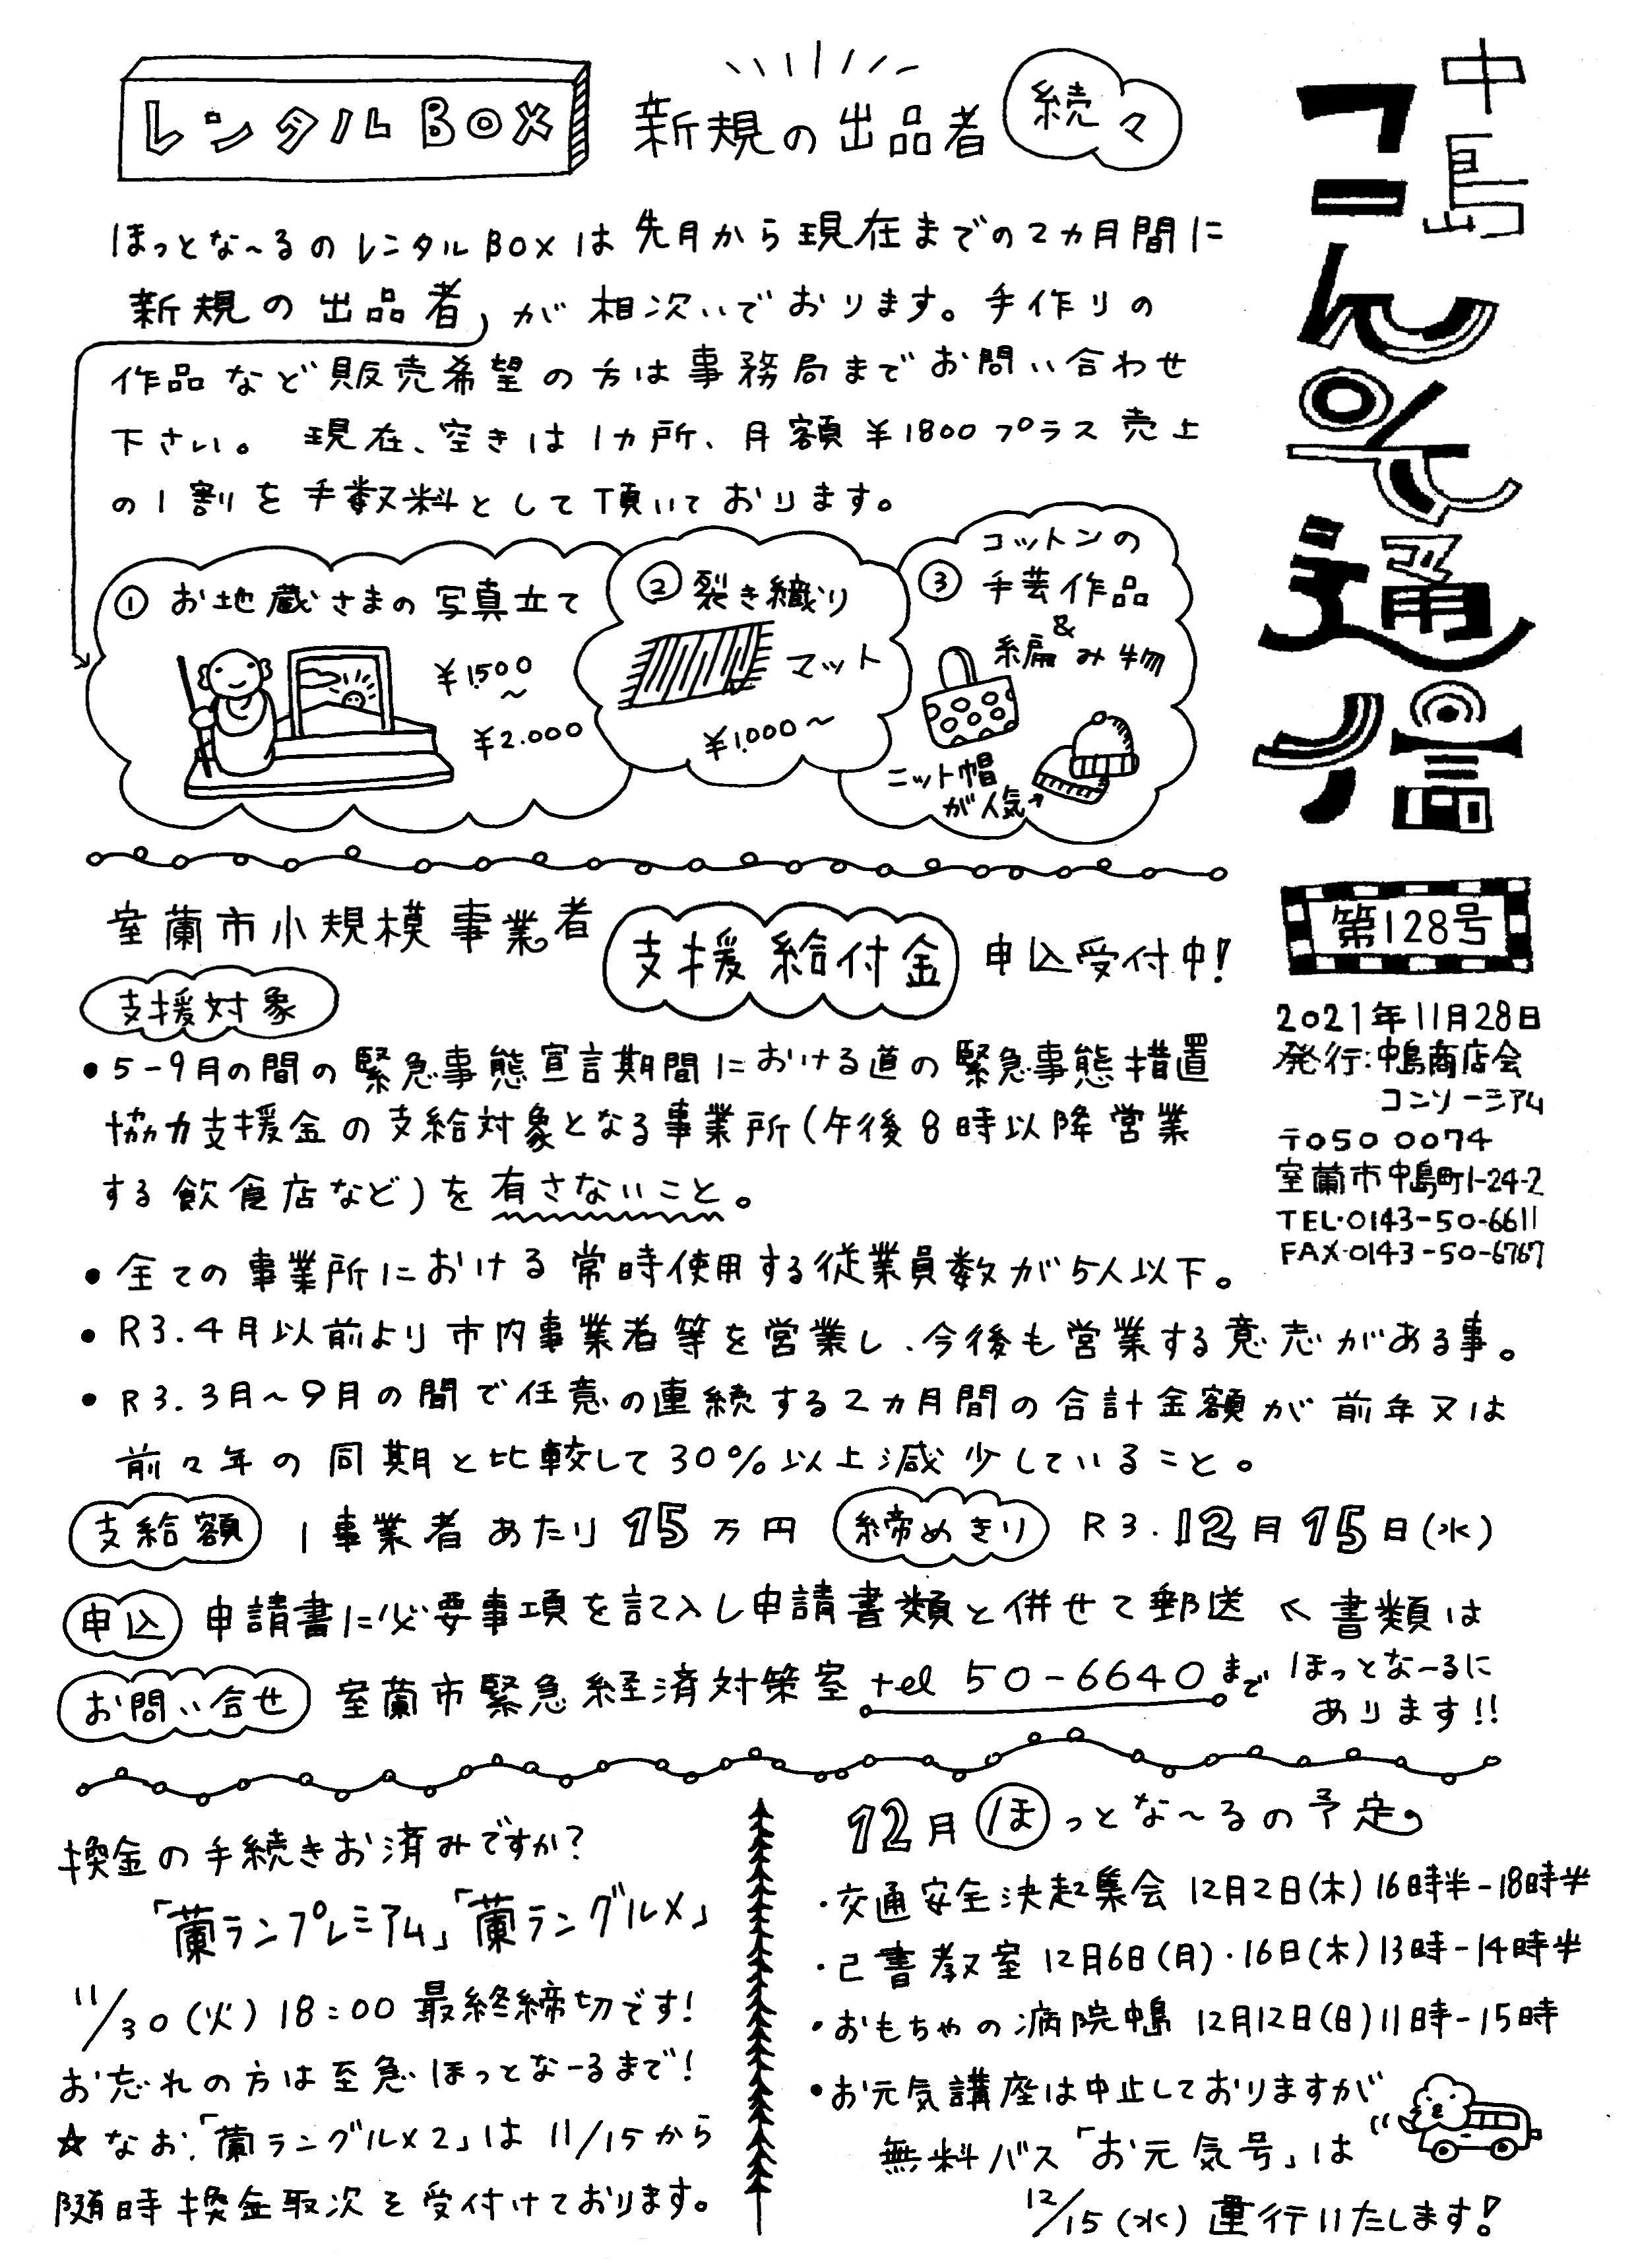 中島
コンソ通信
第128号
2021年11月28日
発行:中島商店会
コンソーシアム
〒050 0074
室蘭市中島町1-24-2
TEL・0143-50-6611
FAX・0143-50-6767
レンタルBOX 新規の出品者 続々
ほっとな〜るのレンタルBOXは先月から現在までの2カ月間に
新規の出品者が相次いでおります。手作りの
作品など販売希望の方は事務局までお問い合わせ
下さい。 現在、空きは1カ所、月額¥1800プラス売上
の1割を手数料として頂いております。
①お地蔵さまの写真立て
¥1.500
〜
¥2.000
②裂き織り
マット
¥1.000〜
③コットンの
手芸作品
&
編み物
ニット帽
が人気
室蘭市小規模事業者 支援給付金 申込受付中!
支援対象
・5-9月の間の緊急事態宣言期間における道の緊急事態措置
協力支援金の支給対象となる事業所(午後8時以降営業
する飲食店など)を有さないこと。
・全ての事業所における常時使用する従業員数が5人以下。
・R3.4月以前より市内事業者等を営業し、今後も営業する意志がある事。
・R3.3月〜9月の間で任意の連続する2カ月間の合計金額が前年又は
前々年の同期と比較して30%以上減少していること。
支給額 1事業者あたり15万円 締めきり R3.12月15日(水)
申込 申請書に必要事項を記入し申請書類と併せて郵送 < 書類は
ほっとなーるに
あります!!
お問い合せ 室蘭市緊急経済対策室 tel 50-6640まで
換金の手続きお済みですか?
「蘭ランプレミアム」「蘭ラングルメ」
11/30(火)18:00最終締切です!
お忘れの方は至急ほっとなーるまで!
☆なお、「蘭ラングルメ2」は11/15から
随時換金取次を受付けております。
12月ほっとな〜るの予定
・交通安全決起集会 12月2日(木)16時半-18時半
・己書教室 12月6日(月)・16日(木)13時-14時半
・おもちゃの病院中島 12月12日(日)11時-15時
・お元気講座は中止しておりますが
無料バス「お元気号」は
12/15(水)運行いたします!